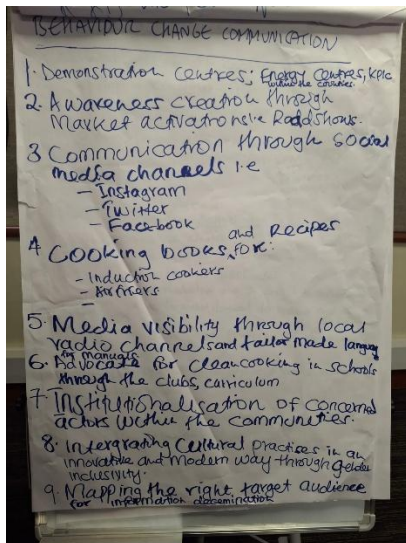 BEHAVIOUR CHANGE COMMUNICATION
1. Demonstration centres; Energy centres, KPLC
within the counties.
2. Awareness creation through
Market activations i.e Roadshows.
3 Communication through social
media channels i.e
- Instagram
- Twitter
- Facebook
4 Cooking books, and Recipes for:
- Induction cookers
- Airfriers
-
5. Media visibility through local
radio channels and tailor made language
in manuals
6. Advocate for clean cooking in schools
through the clubs, curriculum
7. Institutionalisation of concerned
actors within the communities.
8. Intergrating Cultural practises in an
innovative and modern way through gender
inclusivity.
9. Mapping the right target audience
for information dissemination